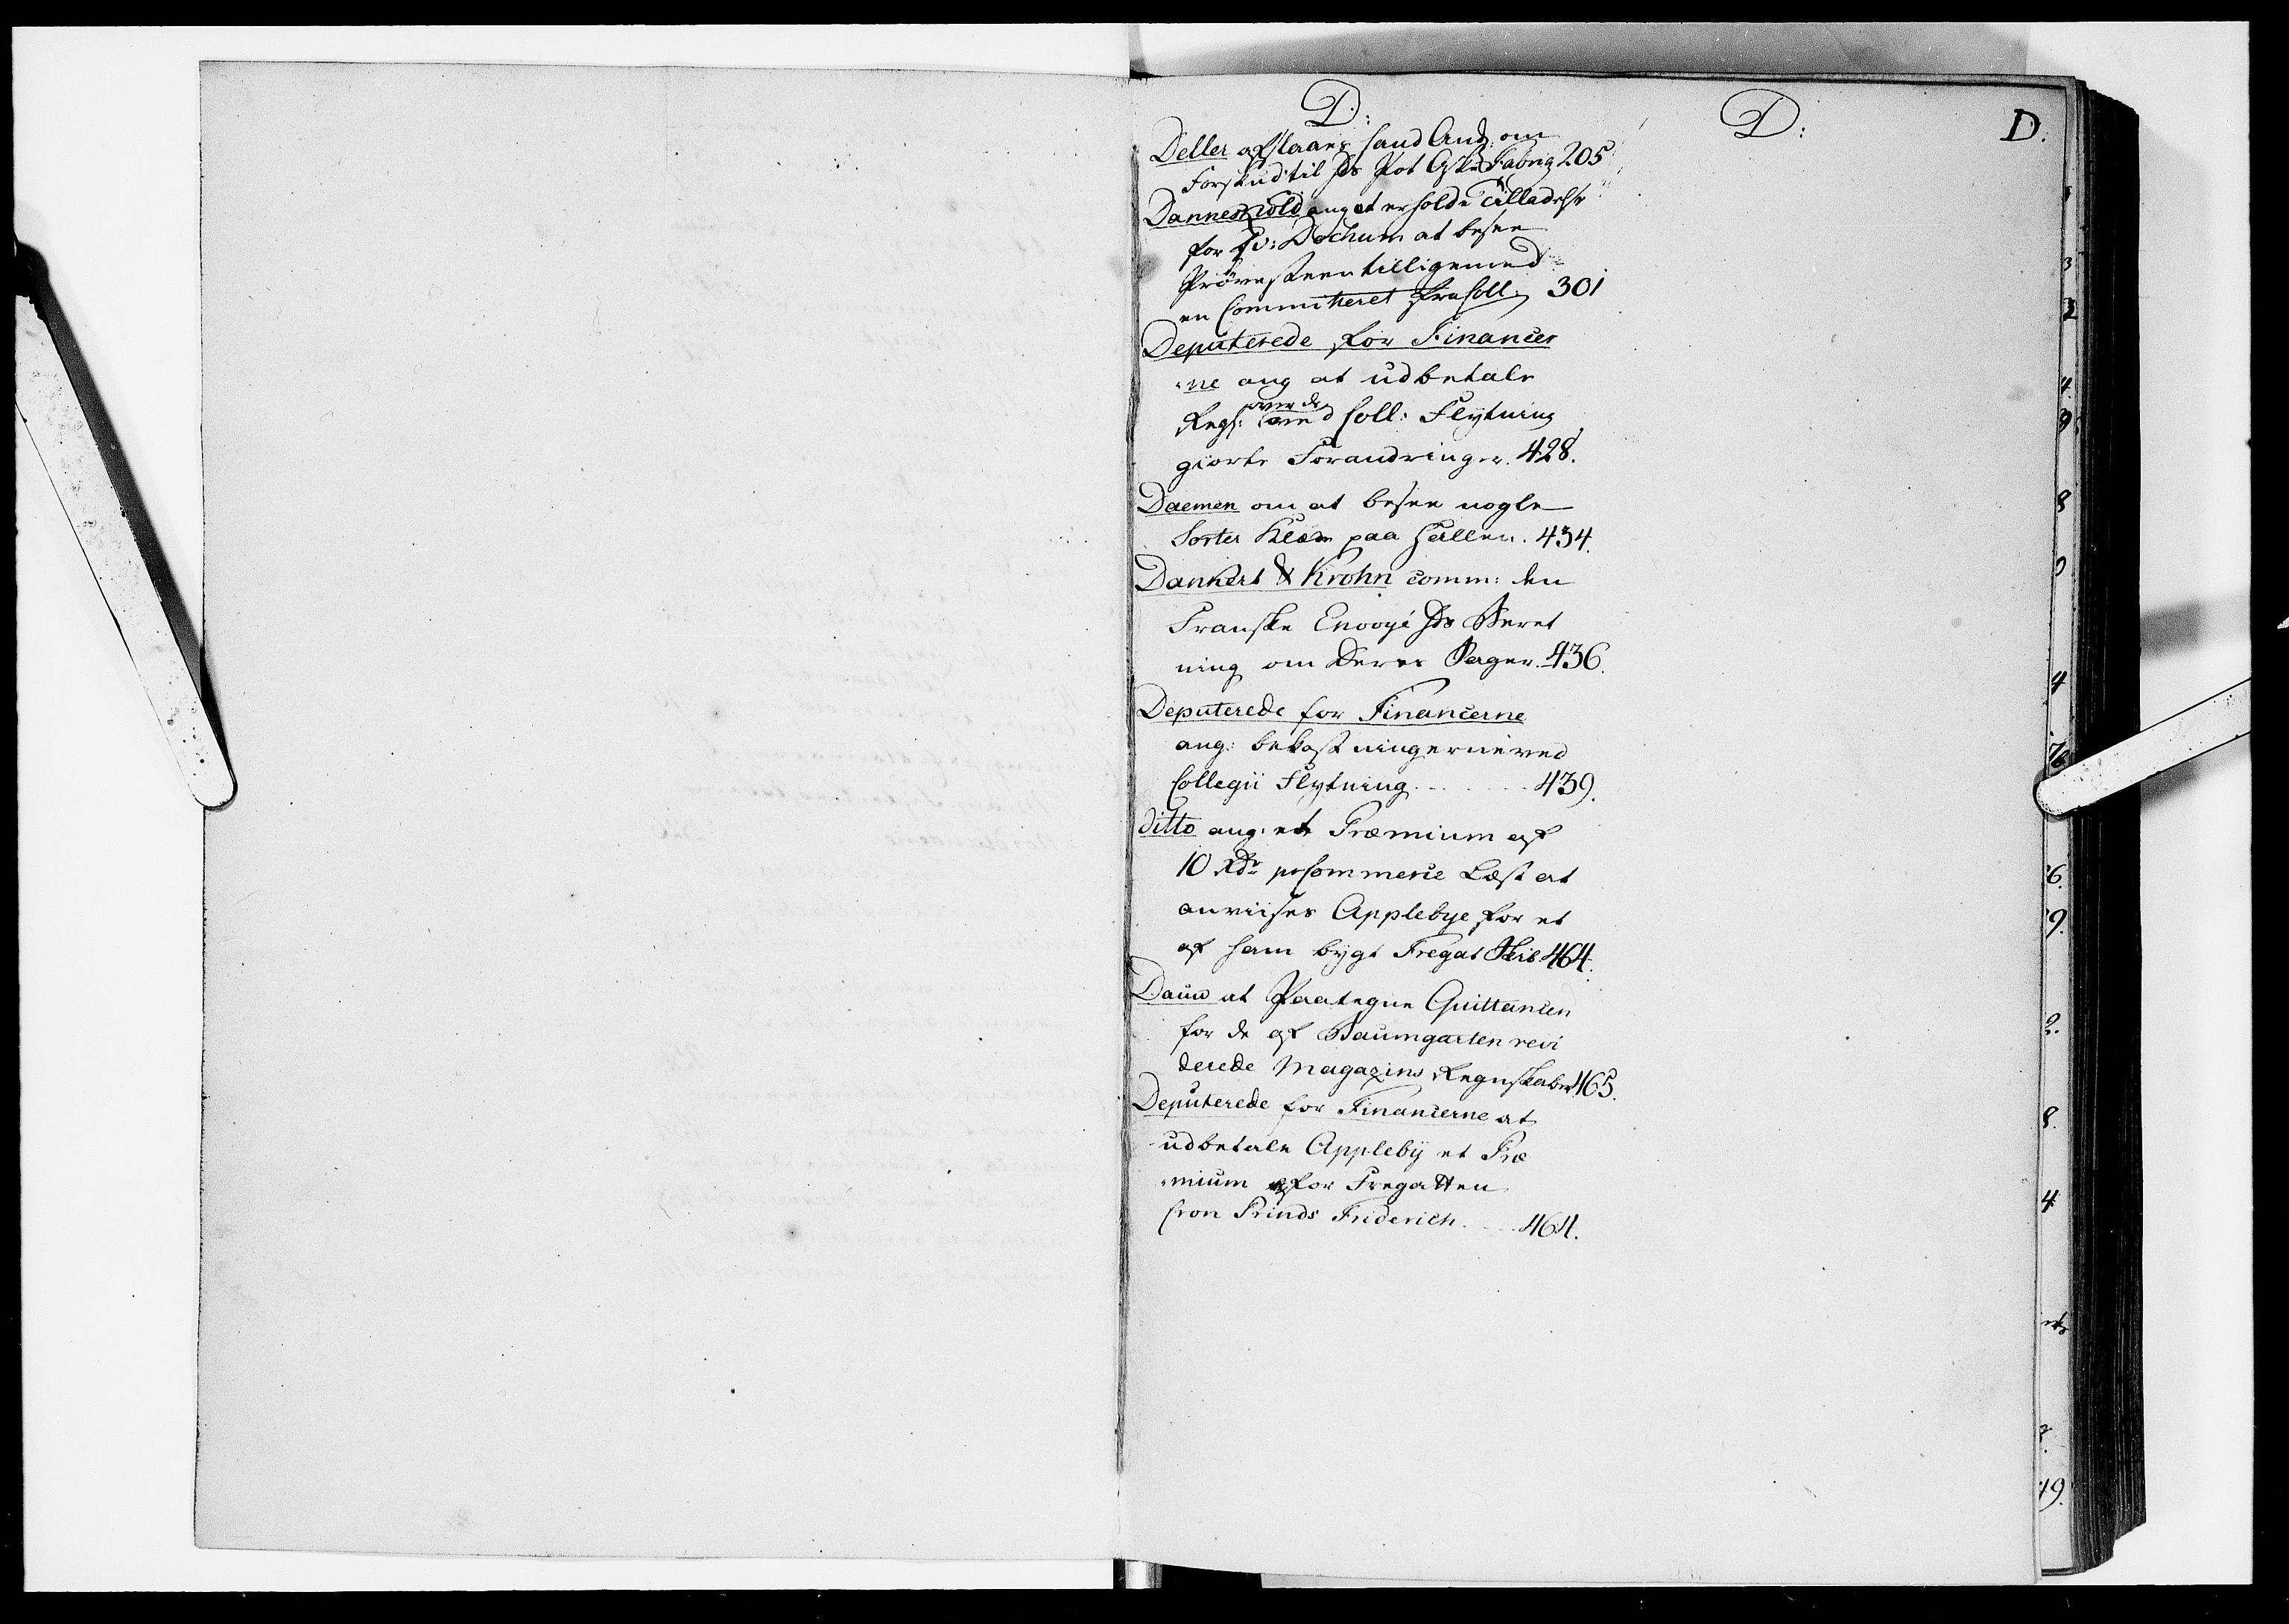 D:
D:
D.
Deller afslaaes hand Ans: om
Forskud til hs Pot Aske Fabriq 205
Danneskiold ang at erholde Tilladelse
for Dochum at besee
Prövesteen tilligemed
en Committeret fra Coll. 301
Deputerede for Financer
-ne ang at udbetale
over de
Regn: ved Coll: Flytning
giorte Forandringer. 428.
Daemen om at besee nogle
Sorter Klæde paa Hallen. 434.
Dankert & Krohn comm: den
Franske Envoyé hs Beret
ning om Deres Sager. 436.
Deputerede for Financerne
ang: bekostningerne ved
Collegii Flytning. - - - - - 439.
ditto ang: et Præmium af
10 Rdr pr Commerce Læst at
anviises Applebye for et
af ham bygt Fregat Skib 464.
Dauw at Paategne Quittancen
for de af Baumgarten revi
derede Magazins Regnskaber 465.
Deputerede for Financerne at
udbetale Appleby et Præ
-mium for Fregatten
Cron Prinds Friderich. - - - 464.